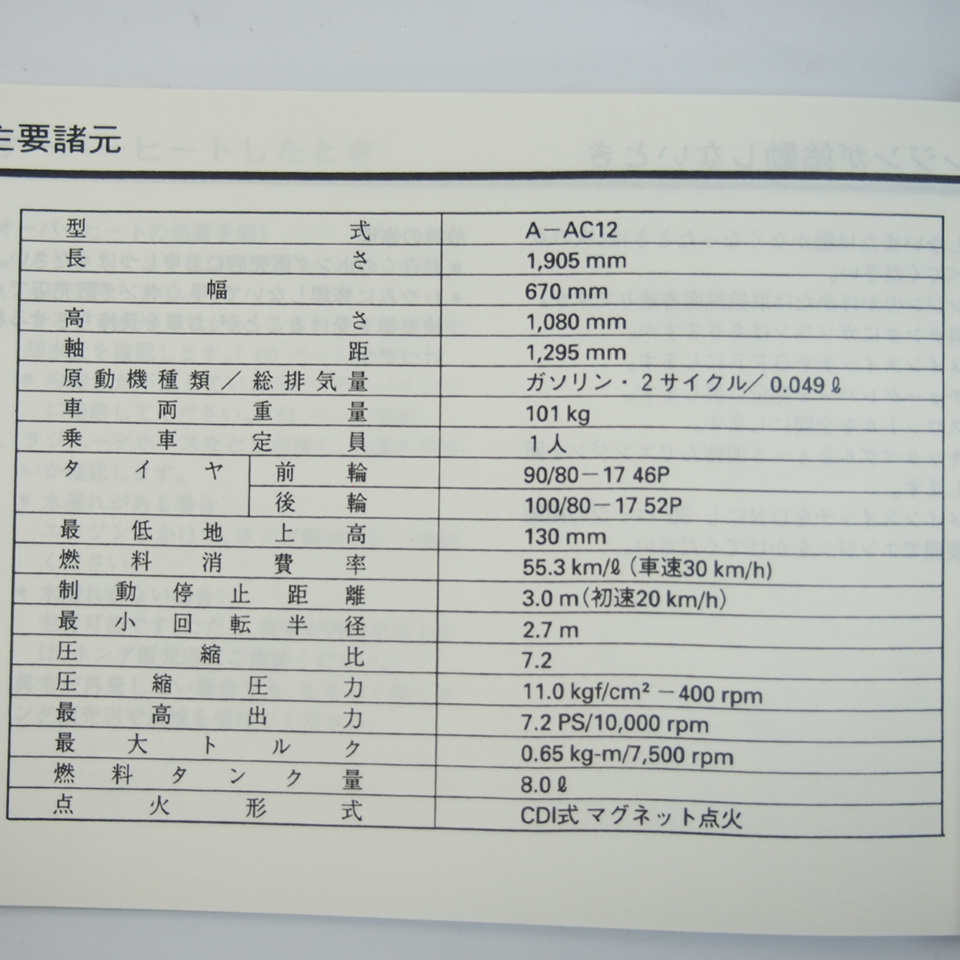 主要諸元
型式 A-AC12
長さ 1,905 mm
幅 670 mm
高さ 1,080 mm
軸距 1,295 mm
原動機種類／総排気量 ガソリン・2サイクル／0.049ℓ
車両重量 101 kg
乗車定員 1人
タイヤ 前輪 90/80－17 46P
後輪 100/80－17 52P
最低地上高 130 mm
燃料消費率 55.3 km/ℓ (車速30 km/h)
制動停止距離 3.0 m (初速20 km/h)
最小回転半径 2.7 m
圧縮比 7.2
圧縮圧力 11.0 kgf/cm²－400 rpm
最高出力 7.2 PS/10,000 rpm
最大トルク 0.65 kg-m/7,500 rpm
燃料タンク量 8.0ℓ
点火形式 CDI式 マグネット点火